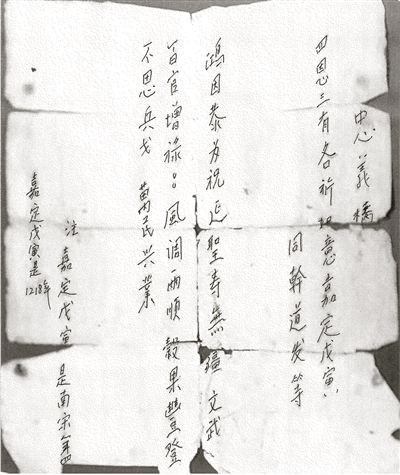 忠義橋
四恩三有各祈如意嘉定戊寅
同幹道发等
鴻因恭为祝延聖壽無疆 文武
百官增祿。風调雨順 穀果豐登
不思兵戈 萬民兴業
注 嘉定戊寅 是南宋
嘉定戊寅是1218年